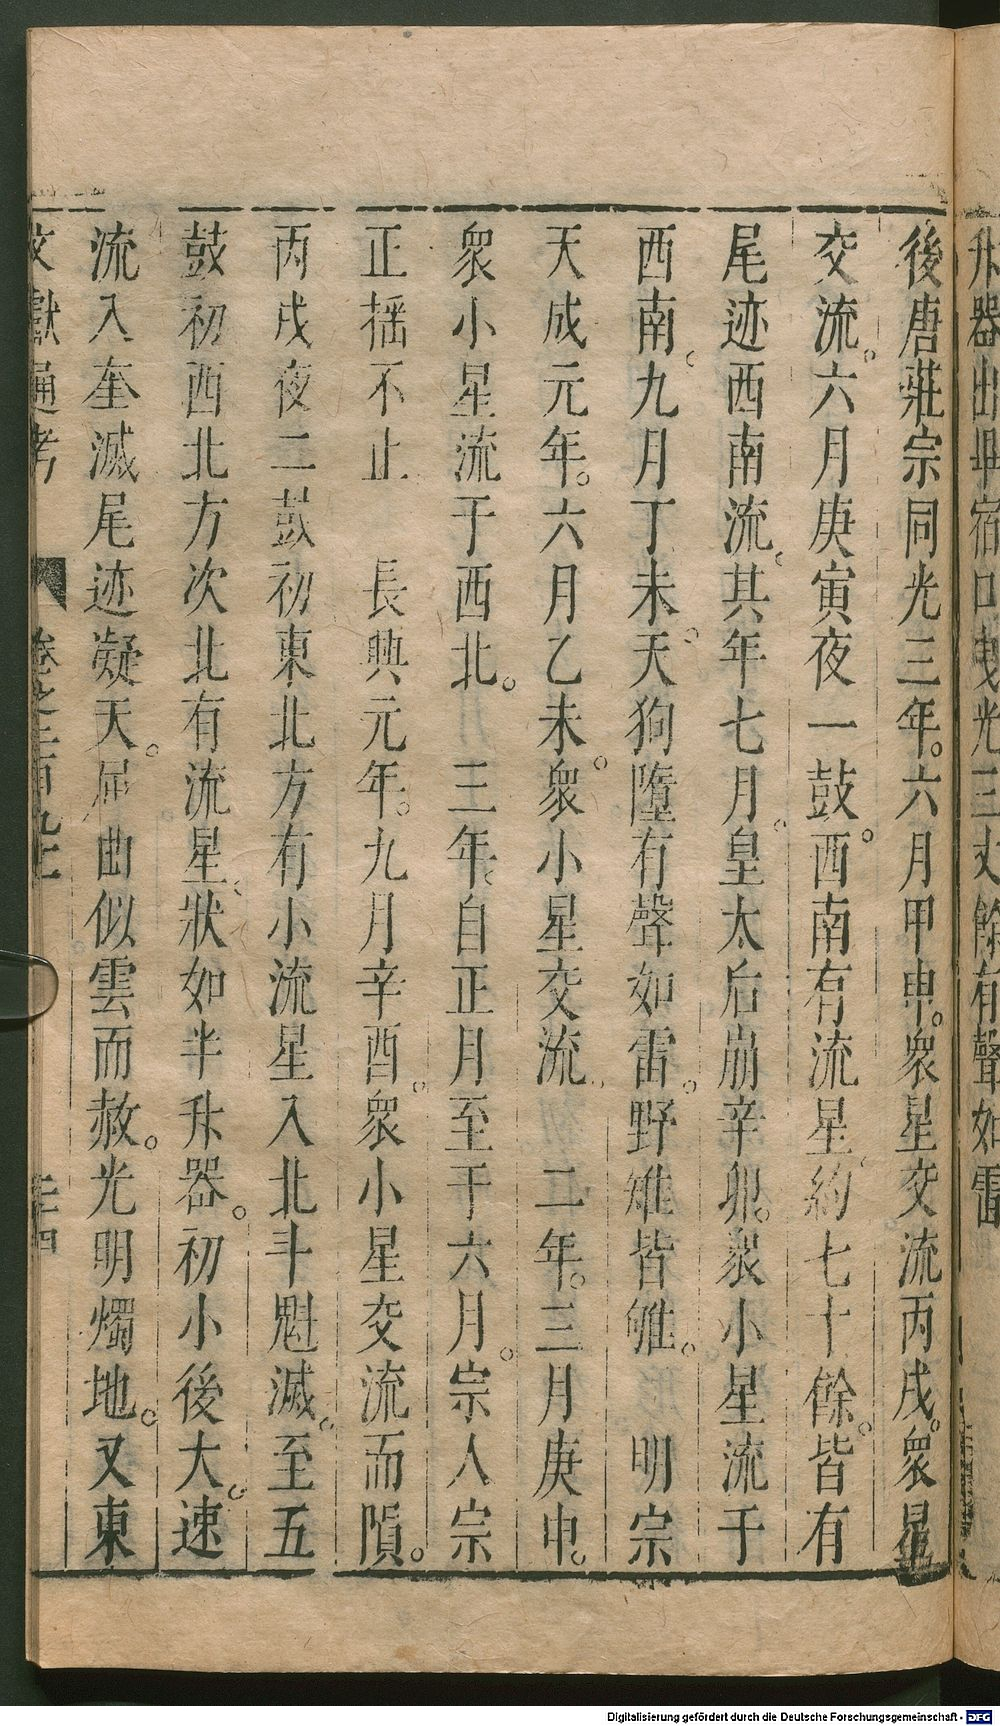 升器出畢宿口曳光三丈餘有聲如雷
後唐莊宗同光三年。六月甲申。衆星交流丙戌。衆星
交流。六月庚寅夜一鼓。西南有流星。約七十餘。皆有
尾迹西南流。其年七月。皇太后崩辛卯。衆小星流于
西南。九月丁未。天狗墮有聲如雷。野雉皆雊。 明宗
天成元年。六月乙未。衆小星交流。 二年。三月庚申。
衆小星流于西北。 三年。自正月至于六月。宗人宗
正搖不止 長興元年。九月辛酉。衆小星交流而隕。
丙戌夜二鼓初東北方有小流星入北斗魁滅。至五
鼓初西北方次北有流星。狀如半升器。初小後大。速
流入奎滅尾迹凝天。屈曲似雲而赦。光明燭地。又東
文獻通考 卷之二百九十一 二十四
Digitalisierung gefördert durch die Deutsche Forschungsgemeinschaft - DFG